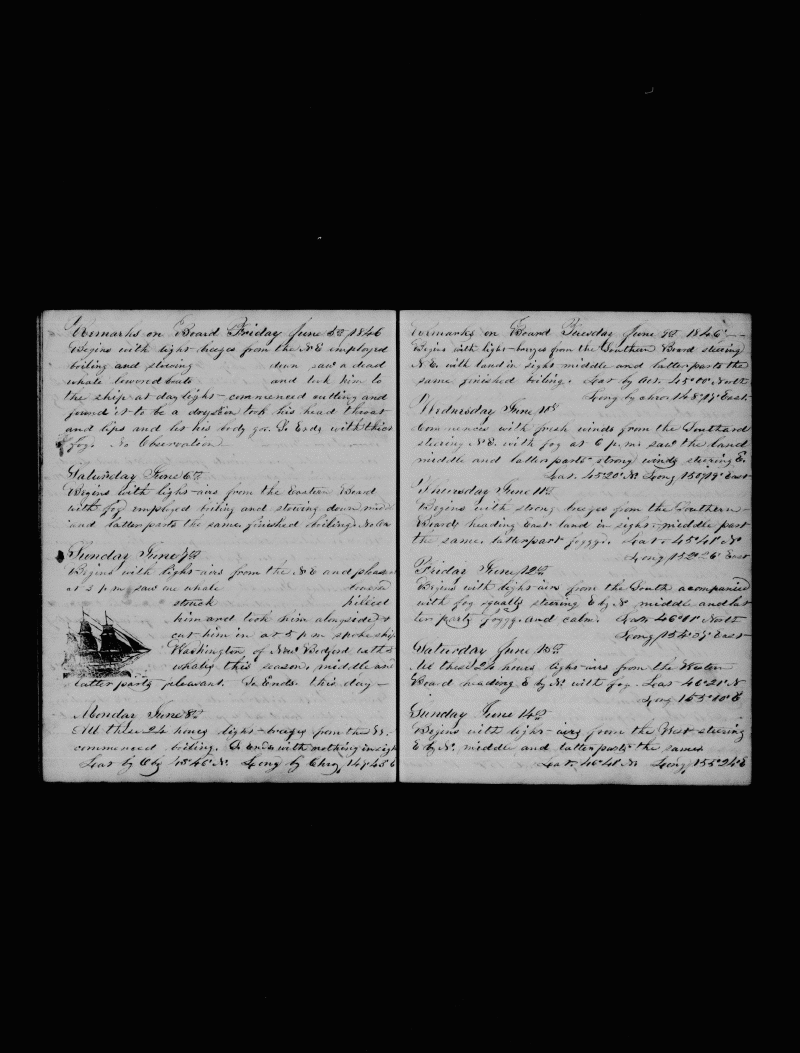 Remarks on Board Friday June 5th 1846
Begins with light breezes from the N E employed
boiling and stowing down saw a dead
whale lowered boats and took him to
the ship at day light commenced cutting and
found it to be a took his head throat
and lips and let his body go. So Ends with thick
fog. No Observation
Saturday June 6th
Begins with light airs from the Eastern Board
with fog employed boiling and stowing down mid
and latter parts the same finished boiling. No
Sunday June 7th
Begins with light airs from the N E and pleasa
at 2 p m saw one whale lowered
struck killed
him and took him alongside &
cut him in at 5 p m spoke ship
Washington of New Bedford with 2
whales this season. middle an
latter parts pleasant. So Ends this day
Monday June 8th
All these 24 hours light breezes from the
commenced boiling. So Ends with nothing in sigh
Lat by 45° 46' N. Long by Chro 147° 45' E
Remarks on Board Tuesday June 9th 1846
Begins with light breezes from the Southern Board steering
N E. with land in sight middle and latter parts the
same finished boiling. Lat by 45° 00' North
Long by chro 148° East.
Wednesday June 10th
Commences with fresh winds from the Southard
steering N E. with fog at 6 p. m. saw the land
middle and latter parts strong winds steering E.
Lat. 45° 20' N. Long 150° East
Thursday June 11th
Begins with strong breezes from the Southern
Board, heading East land in sight middle part
the same. latter part foggy. Lat 45° 41' N
Long 152° 26' East
Friday June 12th
Begins with light airs from the South acompanied
with fog steering E by N middle and lat
ter parts foggy and calm. Lat 46° North
Long 154° East
Saturday June 13th
All these 24 hours light airs from the Western
Board heading E by N. with fog. Lat 46° 21' N
Long 155° 10' E
Sunday June 14th
Begins with light airs from the West steering
E by N. middle and latter parts the same
Lat. 46° 41' N Long 155° 24' E